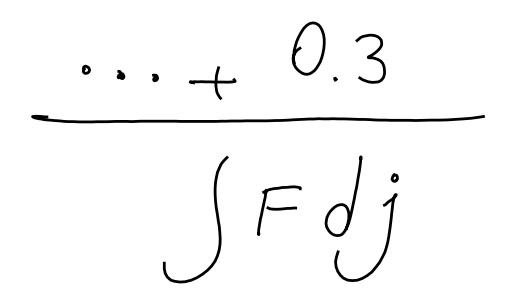 ... + 0.3
∫ F dj